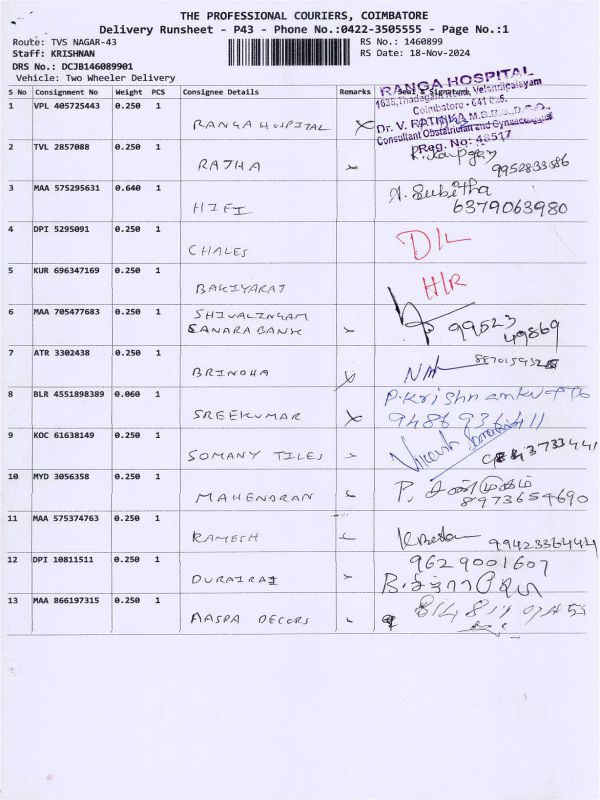 THE PROFESSIONAL COURIERS, COIMBATORE
Delivery Runsheet - P43 - Phone No.:0422-3505555 - Page No.:1
Route: TVS NAGAR-43 RS No.: 1460899
Staff: KRISHNAN RS Date: 18-Nov-2024
DRS No.: DCJB146089901
Vehicle: Two Wheeler Delivery
S No Consignment No Weight PCS Consignee Details Remarks Seal & Signature
RANGA HOSPITAL
1638, Thadagam Road, Velandipalayam
Coimbatore - 641 025.
Dr. V. RATHIKA M.B.B.S., D.G.O.,
Consultant Obstetrician and Gynaecologist
Reg. No: 48517
1 VPL 405725443 0.250 1 RANGA HOSPITAL
2 TVL 2857088 0.250 1 RAJHA 9952833586
3 MAA 575295631 0.640 1 HIFI A. Subitha
6379063980
4 DPI 5295091 0.250 1 CHALES D/L
5 KUR 696347169 0.250 1 BAKIYARAJ H/R
6 MAA 705477683 0.250 1 SHIVALINGAM
CANARA BANK 99523
49869
7 ATR 3302438 0.250 1 BRINDHA
8 BLR 4551898389 0.060 1 SREEKUMAR
9486936411
9 KOC 61638149 0.250 1 SOMANY TILES
10 MYD 3056358 0.250 1 MAHENDRAN P. சண்முகம்
8973654690
11 MAA 575374763 0.250 1 RAMESH 9942336444
12 DPI 10811511 0.250 1 DURAIRAJ 9629001607
13 MAA 866197315 0.250 1 AASPA DECORS